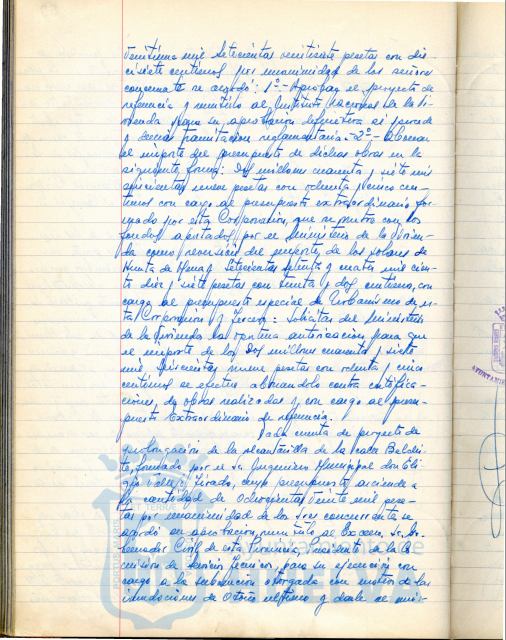 veintiuno mil setecientas veintisiete pesetas con die-
cisiete centimos por unanimidad de los señores
concurrentes se acordó: 1º.- Aprobar el proyecto de
referencia y remitirlo al Instituto Nacional de la Vi-
vienda para su aprobación definitiva si procede
y demas tramitacion reglamentaria.- 2º- Abonar
el importe del presupuesto de dichas obras en la
siguiente forma: Dos millones cuarenta y siete mil
seiscientas nueve pesetas con ochenta y cinco cen-
timos con cargo al presupuesto extraordinario for-
mado por esta Corporación, que se nutre con los
fondos aportados por el Ministerio de la Vivien-
da como reversión del importe de los solares de
Huerta de Mena y Setecientas setenta y cuatro mil cien-
to diez y siete pesetas con treinta y dos centimos, con
cargo al presupuesto especial de Urbanismo de es-
ta Corporación y Tercero: Solicitar del Ministerio
de la Vivienda la oportuna autorización para que
el importe de los Dos millones cuarenta y siete
mil seiscientas nueve pesetas con ochenta y cinco
centimos se efectue abonandolo contra certifica-
ciones, de obras realizadas y con cargo al presu-
puesto Extraordinario de referencia.
Dada cuenta de proyecto de
prolongación de la alcantarilla de la calle
formado por el Sr. Ingeniero Municipal don Eli-
Tirado, cuyo presupuesto asciende a
la cantidad de Ochocientas veinte mil pese-
tas por unanimidad de los Sres concurrentes se
acordó su aprobación, remitirlo al Excmo. Sr. Go-
bernador Civil de esta Provincia, Presidente de la Co-
misión de Servicios Tecnicos, para su ejecución con
cargo a la subvencion otorgada con motivo de las
inundaciones de Otoño ultimo y darle al mis-